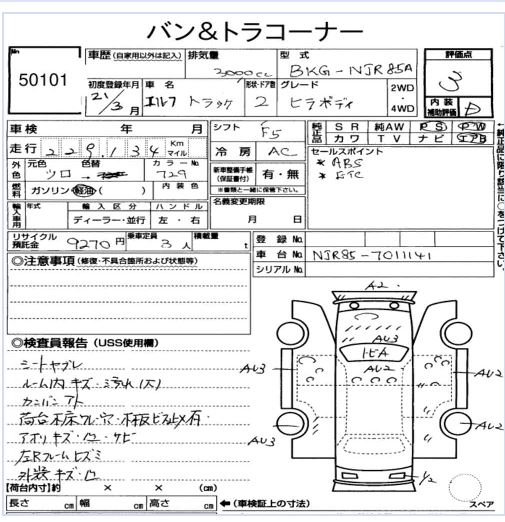 バン＆トラコーナー
No 50101
車歴 (自家用以外は記入) 排気量 3000cc
型式 BKG-NJR85A
評価点 3
初度登録年月 21/3月
車名 エルフ トラック
形状・ドア数 2
グレード ヒラボディ
2WD・4WD
内装補助評価 D
車検 年 月
シフト F5
純正品 SR 純AW PS PW
カワ TV ナビ エアB
走行 229134 Km マイル
冷房 AC
セールスポイント
* ABS
* ETC
外色 元色 シロ → 色替
カラーNo. 729
新車整備手帳(保証書付) 有・無
※書類と一緒に保管下さい。
燃料 ガソリン 軽油 ( )
内装色
名義変更期限 月 日
輸入車用 年式 輸入区分 ディーラー・並行 ハンドル 左・右
リサイクル預託金 9270円
乗車定員 3人
積載量 t
登録No.
車台No. NJR85-7011141
シリアルNo.
◎注意事項 (修復・不具合箇所および状態等)
◎検査員報告 (USS使用欄)
シートヤブレ
ルーム内キズ・汚れ(大)
カンバンアト
アオリキズ・凹・サビ
左Rフレームヒズミ
外装キズ・凹
【荷台内寸】約 × × (cm)
長さ cm 幅 cm 高さ cm ←(車検証上の寸法)
A2
AU3
AU2
AU3
AU2
AU3
AU2
スペア
←純正品に限り該当に○をつけて下さい。